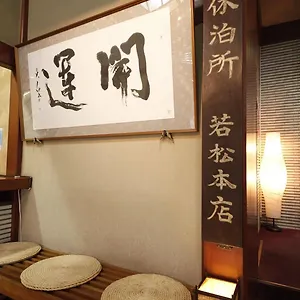 開運
休泊所 若松本店